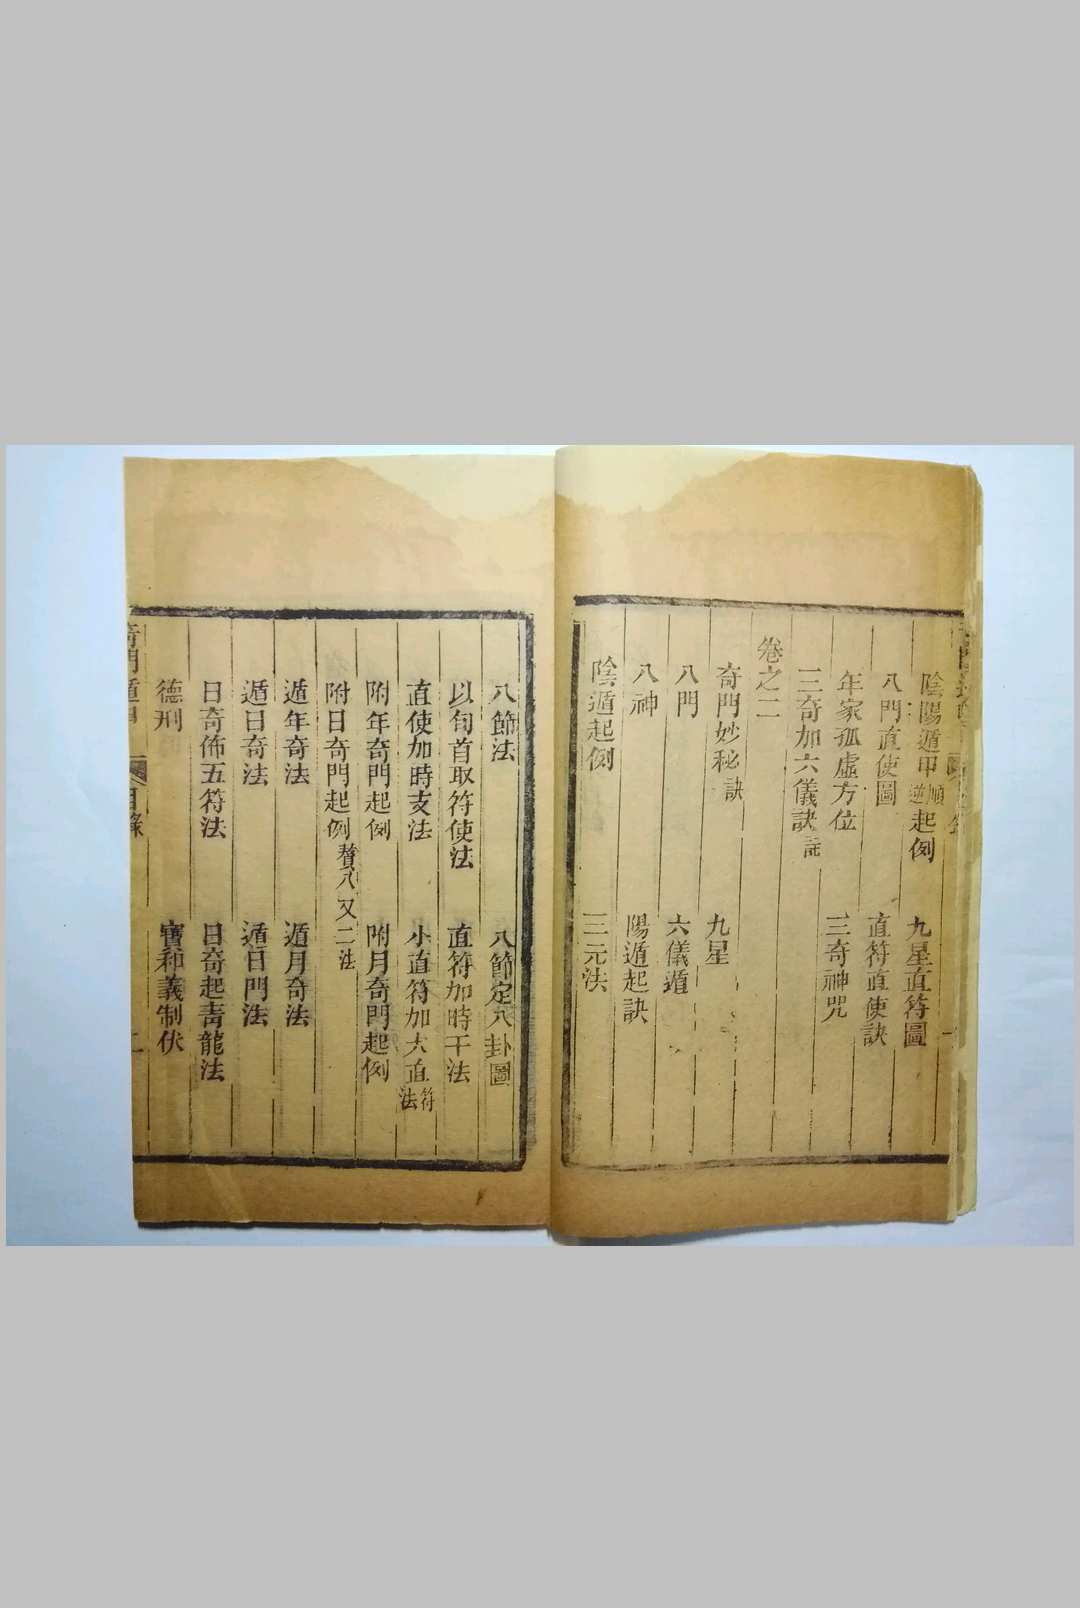 陰陽遁甲順逆起例 九星直符圖
八門直使圖 直符直使訣
年家孤虛方位 三奇神咒
三奇加六儀訣註
卷之二
奇門妙秘訣 九星
八門 六儀遁
八神 陽遁起訣
陰遁起例 三元法
八節法 八節定八卦圖
以旬首取符使法 直符加時干法
直使加時支法 小直符加大直符法
附年奇門起例 附月奇門起例
附日奇門起例 贅八又二法
遁年奇法 遁月奇法
遁日奇法 遁日門法
日奇佈五符法 日奇起青龍法
德刑 寶和義制伏
奇門遁甲 目錄 二